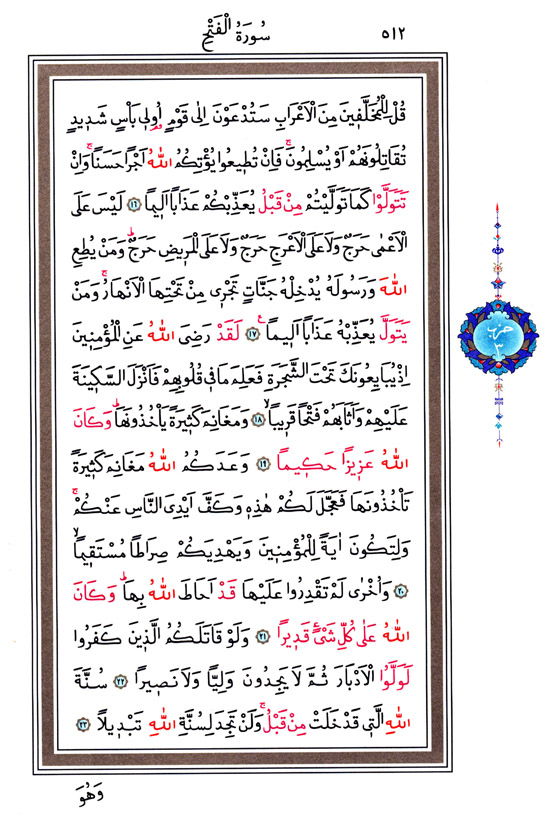 ٥١٢
سُورَةُ الْفَتْحِ
قُلْ لِلْمُخَلَّفٖينَ مِنَ الْاَعْرَابِ سَتُدْعَوْنَ اِلٰى قَوْمٍ اُو۬لٖى بَأْسٍ شَدٖيدٍ
تُقَاتِلُونَهُمْ اَوْ يُسْلِمُونَۚ فَاِنْ تُطٖيعُوا يُؤْتِكُمُ اللّٰهُ اَجْرًا حَسَنًاۚ وَاِنْ
تَتَوَلَّوْا كَمَا تَوَلَّيْتُمْ مِنْ قَبْلُ يُعَذِّبْكُمْ عَذَابًا اَلٖيمًا ﴿١٦﴾ لَيْسَ عَلَى
الْاَعْمٰى حَرَجٌ وَلَا عَلَى الْاَعْرَجِ حَرَجٌ وَلَا عَلَى الْمَرٖيضِ حَرَجٌۜ وَمَنْ يُطِعِ
اللّٰهَ وَرَسُولَهُ يُدْخِلْهُ جَنَّاتٍ تَجْرٖى مِنْ تَحْتِهَا الْاَنْهَارُۚ وَمَنْ
يَتَوَلَّ يُعَذِّبْهُ عَذَابًا اَلٖيمًاۚ ﴿١٧﴾ لَقَدْ رَضِىَ اللّٰهُ عَنِ الْمُؤْمِنٖينَ
اِذْ يُبَايِعُونَكَ تَحْتَ الشَّجَرَةِ فَعَلِمَ مَا فٖى قُلُوبِهِمْ فَاَنْزَلَ السَّكٖينَةَ
عَلَيْهِمْ وَاَثَابَهُمْ فَتْحًا قَرٖيبًاۙ ﴿١٨﴾ وَمَغَانِمَ كَثٖيرَةً يَأْخُذُونَهَاۜ وَكَانَ
اللّٰهُ عَزٖيزًا حَكٖيمًا ﴿١٩﴾ وَعَدَكُمُ اللّٰهُ مَغَانِمَ كَثٖيرَةً
تَأْخُذُونَهَا فَعَجَّلَ لَكُمْ هٰذِهٖ وَكَفَّ اَيْدِىَ النَّاسِ عَنْكُمْۚ
وَلِتَكُونَ اٰيَةً لِلْمُؤْمِنٖينَ وَيَهْدِيَكُمْ صِرَاطًا مُسْتَقٖيمًاۙ
﴿٢٠﴾ وَاُخْرٰى لَمْ تَقْدِرُوا عَلَيْهَا قَدْ اَحَاطَ اللّٰهُ بِهَاۜ وَكَانَ
اللّٰهُ عَلٰى كُلِّ شَىْءٍ قَدٖيرًا ﴿٢١﴾ وَلَوْ قَاتَلَكُمُ الَّذٖينَ كَفَرُوا
لَوَلَّوُا الْاَدْبَارَ ثُمَّ لَا يَجِدُونَ وَلِيًّا وَلَا نَصٖيرًا ﴿٢٢﴾ سُنَّةَ
اللّٰهِ الَّتٖى قَدْ خَلَتْ مِنْ قَبْلُۚ وَلَنْ تَجِدَ لِسُنَّةِ اللّٰهِ تَبْدٖيلًا ﴿٢٣﴾
وَهُوَ
حزب
٣